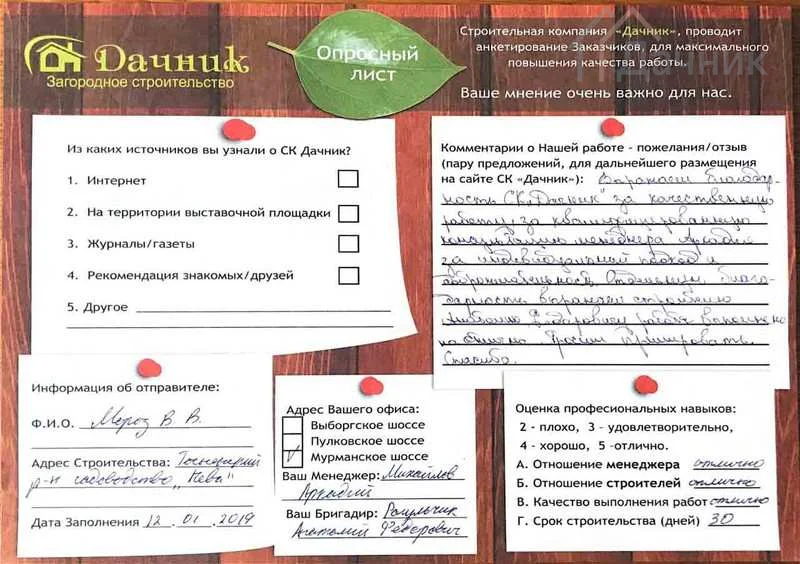 Дачник
Загородное строительство
Опросный
лист
Строительная компания «Дачник», проводит
анкетирование Заказчиков, для максимального
повышения качества работы.
Дачник
Ваше мнение очень важно для нас.
Из каких источников вы узнали о СК Дачник?
1. Интернет
2. На территории выставочной площадки
3. Журналы/газеты
4. Рекомендация знакомых/друзей
5. Другое
Комментарии о Нашей работе - пожелания/отзыв
(пару предложений, для дальнейшего размещения
на сайте СК «Дачник»): Выражаем благодар-
ность СК "Дачник" за качественную
работу, за квалифицированную
консультацию менеджера Аркадия
за индивидуальный подход и
доброжелательность. Отдельную благо-
дарность выражаем строителю
Анатолию Федоровичу работа выполнена
на отлично. Просим премировать.
Спасибо.
Информация об отправителе:
Ф.И.О. Мороз В. В.
Адрес Строительства: Тосненский
р-н садоводство "Нева"
Дата Заполнения 12.01.2019
Адрес Вашего офиса:
Выборгское шоссе
Пулковское шоссе
Мурманское шоссе
Ваш Менеджер: Михайлов
Аркадий
Ваш Бригадир:
Анатолий Федорович
Оценка профессиональных навыков:
2 - плохо, 3 - удовлетворительно,
4 - хорошо, 5 -отлично.
А. Отношение менеджера отлично
Б. Отношение строителей отлично
В. Качество выполнения работ отлично
Г. Срок строительства (дней) 30